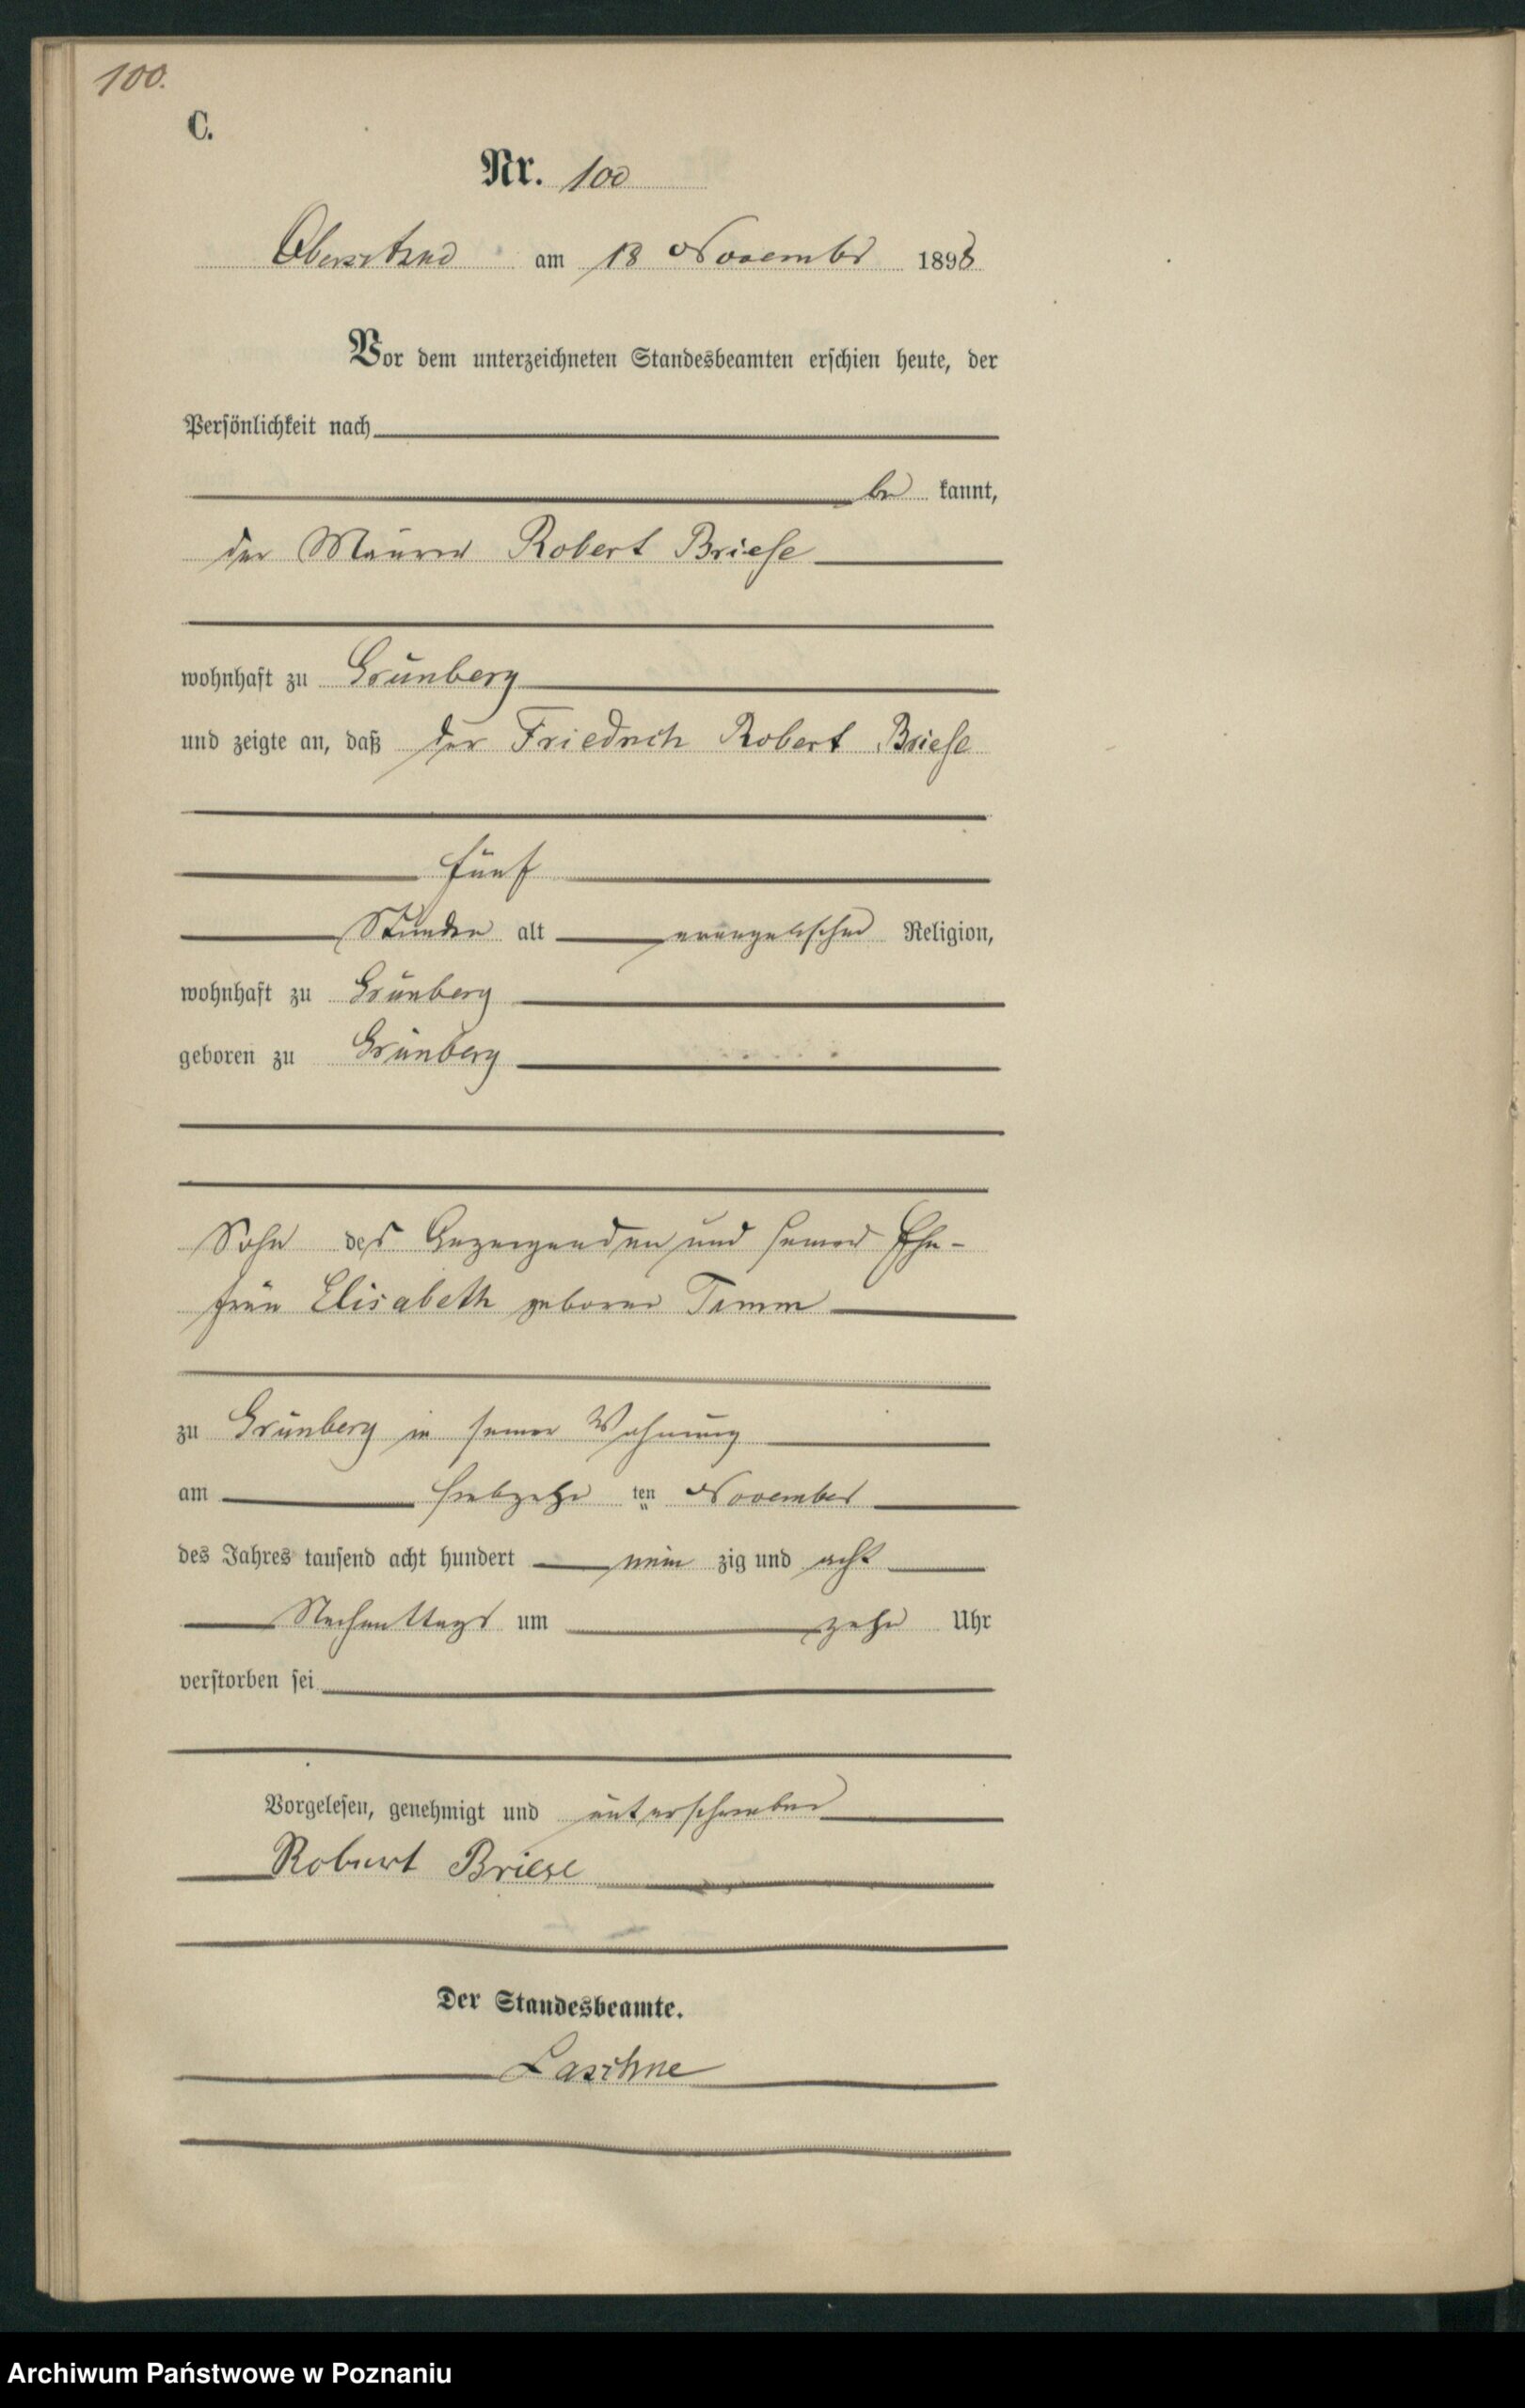 100.
C.
Nr. 100
Obersitzko am 18 November 1898
Vor dem unterzeichneten Standesbeamten erschien heute, der
Persönlichkeit nach
be kannt,
der Maurer Robert Briese
wohnhaft zu Grünberg
und zeigte an, daß der Friedrich Robert Briese
fünf
Stunden alt evangelischer Religion,
wohnhaft zu Grünberg
geboren zu Grünberg
Sohn des Anzeigenden und seiner Ehe-
frau Elisabeth geborene Timm
zu Grünberg in seiner Wohnung
am siebzehn ten November
des Jahres tausend acht hundert neun zig und acht
Nachmittags um zehn Uhr
verstorben sei
Vorgelesen, genehmigt und unterschrieben
Robert Briese
Der Standesbeamte.
Laschne
Archiwum Państwowe w Poznaniu